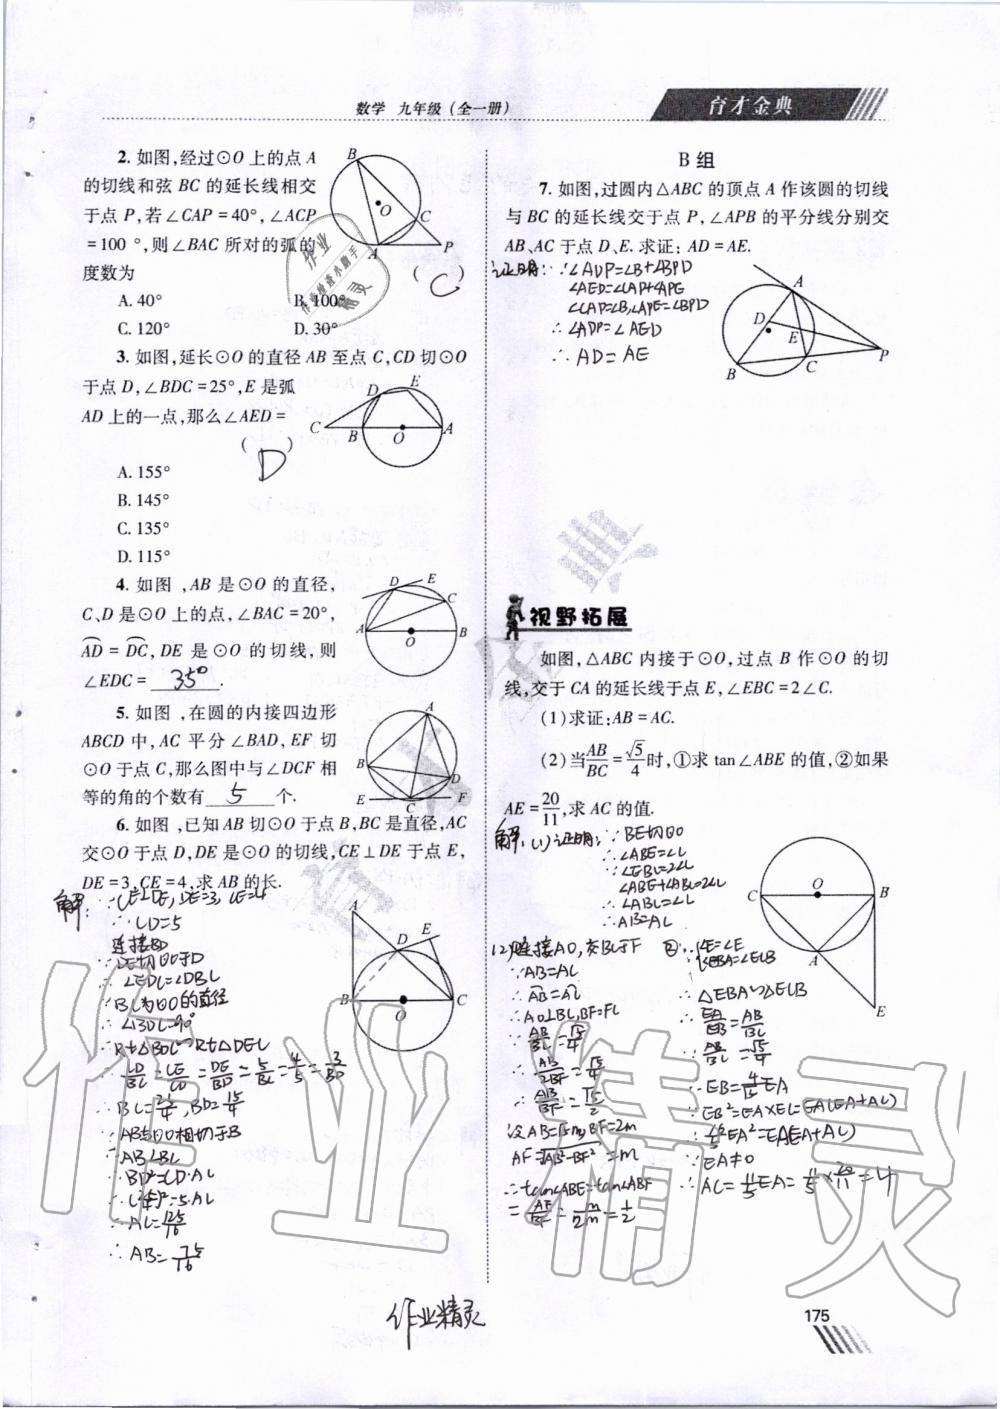 数学 九年级(全一册)
育才金典
2. 如图,经过⊙O 上的点 A
的切线和弦 BC 的延长线相交
于点 P,若∠CAP=40°,∠ACP
=100°,则∠BAC 所对的弧的
度数为
( C )
A. 40° B. 100°
C. 120° D. 30°
3. 如图,延长⊙O 的直径 AB 至点 C,CD 切⊙O
于点 D,∠BDC=25°,E 是弧
AD 上的一点,那么∠AED=
( D )
A. 155°
B. 145°
C. 135°
D. 115°
4. 如图 ,AB 是⊙O 的直径,
C、D 是⊙O 上的点,∠BAC=20°,
AD=DC,DE 是⊙O 的切线,则
∠EDC= 35° .
5. 如图 ,在圆的内接四边形
ABCD 中,AC 平分∠BAD,EF 切
⊙O 于点 C,那么图中与∠DCF 相
等的角的个数有 5 个.
6. 如图 ,已知 AB 切⊙O 于点 B,BC 是直径,AC
交⊙O 于点 D,DE 是⊙O 的切线,CE⊥DE 于点 E,
DE=3,CE=4,求 AB 的长.
解: ∵CE⊥DE, DE=3, CE=4
∴CD=5
连接BD
∵DE切⊙O于D
∴∠EDC=∠DBC
∵BC为⊙O的直径
∴∠BDC=90°
∴Rt△BDC∽Rt△DEC
∴BC=25/4, BD=15/4
∵AB与⊙O相切于B
∴AB⊥BC
∴AB=75/16
B 组
7. 如图,过圆内△ABC 的顶点 A 作该圆的切线
与 BC 的延长线交于点 P,∠APB 的平分线分别交
AB、AC 于点 D、E. 求证: AD=AE.
证明: ∵∠ADP=∠B+∠BPD
∠AED=∠CAP+∠APE
∠CAP=∠B, ∠APE=∠BPD
∴∠ADP=∠AED
∴AD=AE
视野拓展
如图,△ABC 内接于⊙O,过点 B 作⊙O 的切
线,交于 CA 的延长线于点 E,∠EBC=2∠C.
(1)求证:AB=AC.
(2)当AB/BC=√5/4时,①求 tan∠ABE 的值,②如果
AE=20/11,求 AC 的值.
解: (1)证明: ∵BE切⊙O
∴∠ABE=∠C
∵∠EBC=2∠C
∠ABE+∠ABC=2∠C
∴∠ABC=∠C
∴AB=AC
(2)①连接AO, 交BC于F
∵AB=AC
∴AB=AC
∴AO⊥BC, BF=FC
∵AB/BC=√5/4
∴AB/2BF=√5/4
∴AB/BF=√5/2
设AB=√5m, BF=2m
AF=√(AB²-BF²)=m
∴tan∠ABE=tan∠ABF
=AF/BF=m/2m=1/2
② ∵∠E=∠E
∠EBA=∠ECB
∴△EBA∽△ECB
∴EA/EB=AB/BC
∵AB/BC=√5/4
∴EB=4/√5EA
∵EB²=EA×EC=EA(EA+AC)
∵EA≠0
∴AC=11/5EA=11/5×20/11=4
作业精灵
175